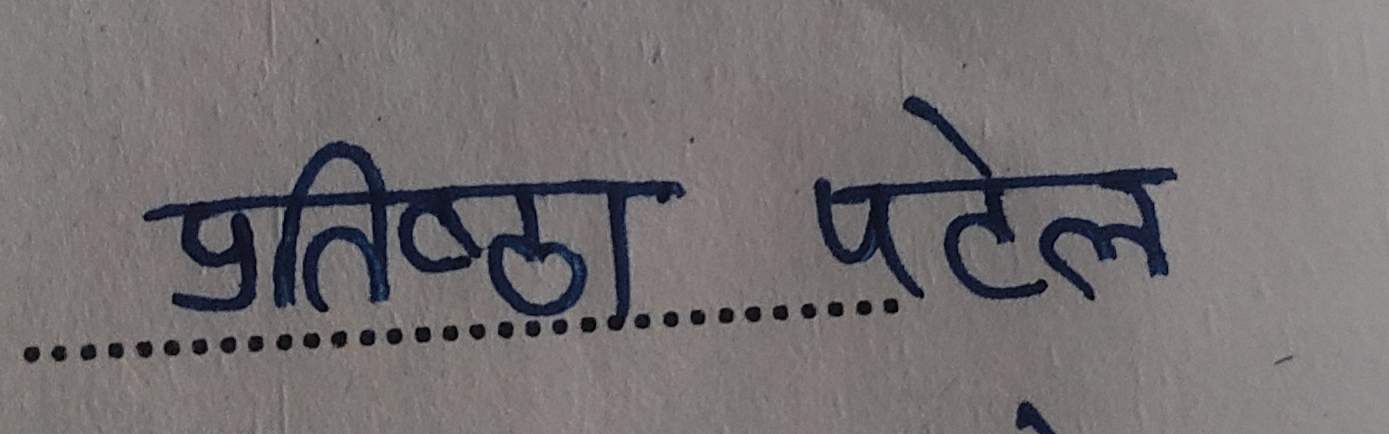 प्रतिष्ठा पटेल